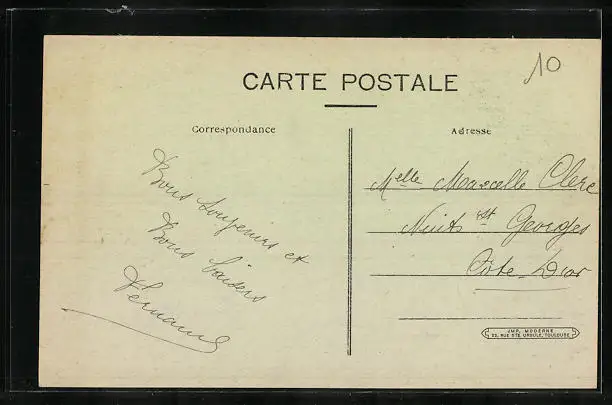 10
CARTE POSTALE
Correspondance
Adresse
Bons souvenirs et
Bons baisers
Fernand
Melle Marcelle Clerc
Nuits St Georges
Côte-D'or
IMP. MODERNE
22, RUE STE URSULE, TOULOUSE